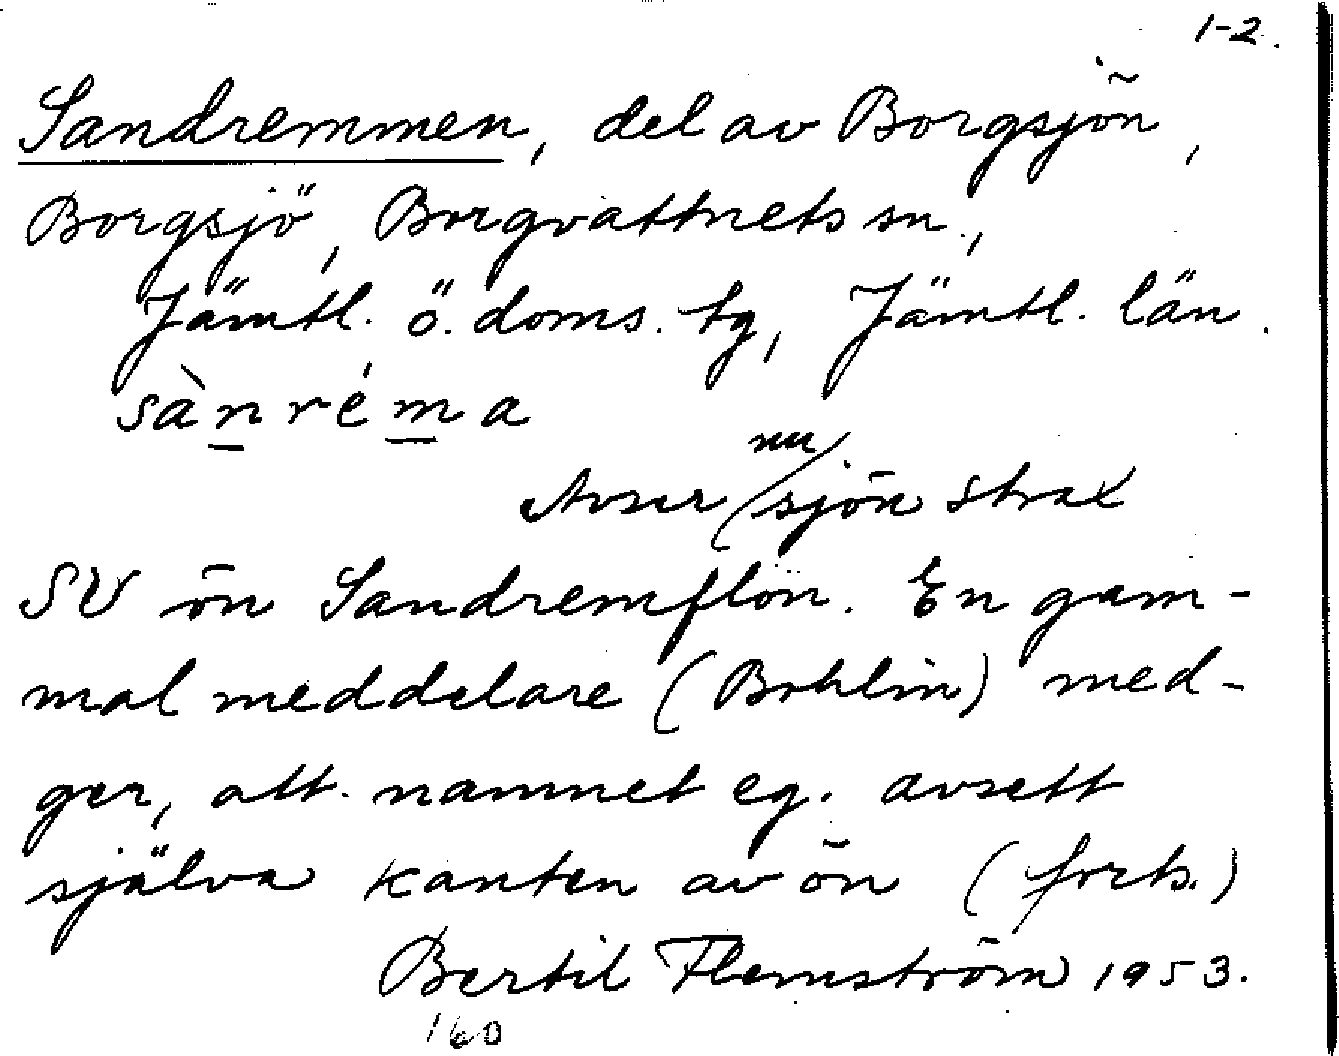 1-2.
Sandremmen, del av Borgsjön,
Borgsjö, Borgvattnets sn.,
Jämtl. ö. doms. tg, Jämtl. län.
sànréma
nu
Avser sjön strax
SV ön Sandremflön. En gam-
mal meddelare (Bohlin) med-
ger, att namnet eg. avsett
själva kanten av ön (forts.)
Bertil Flemström 1953.
160